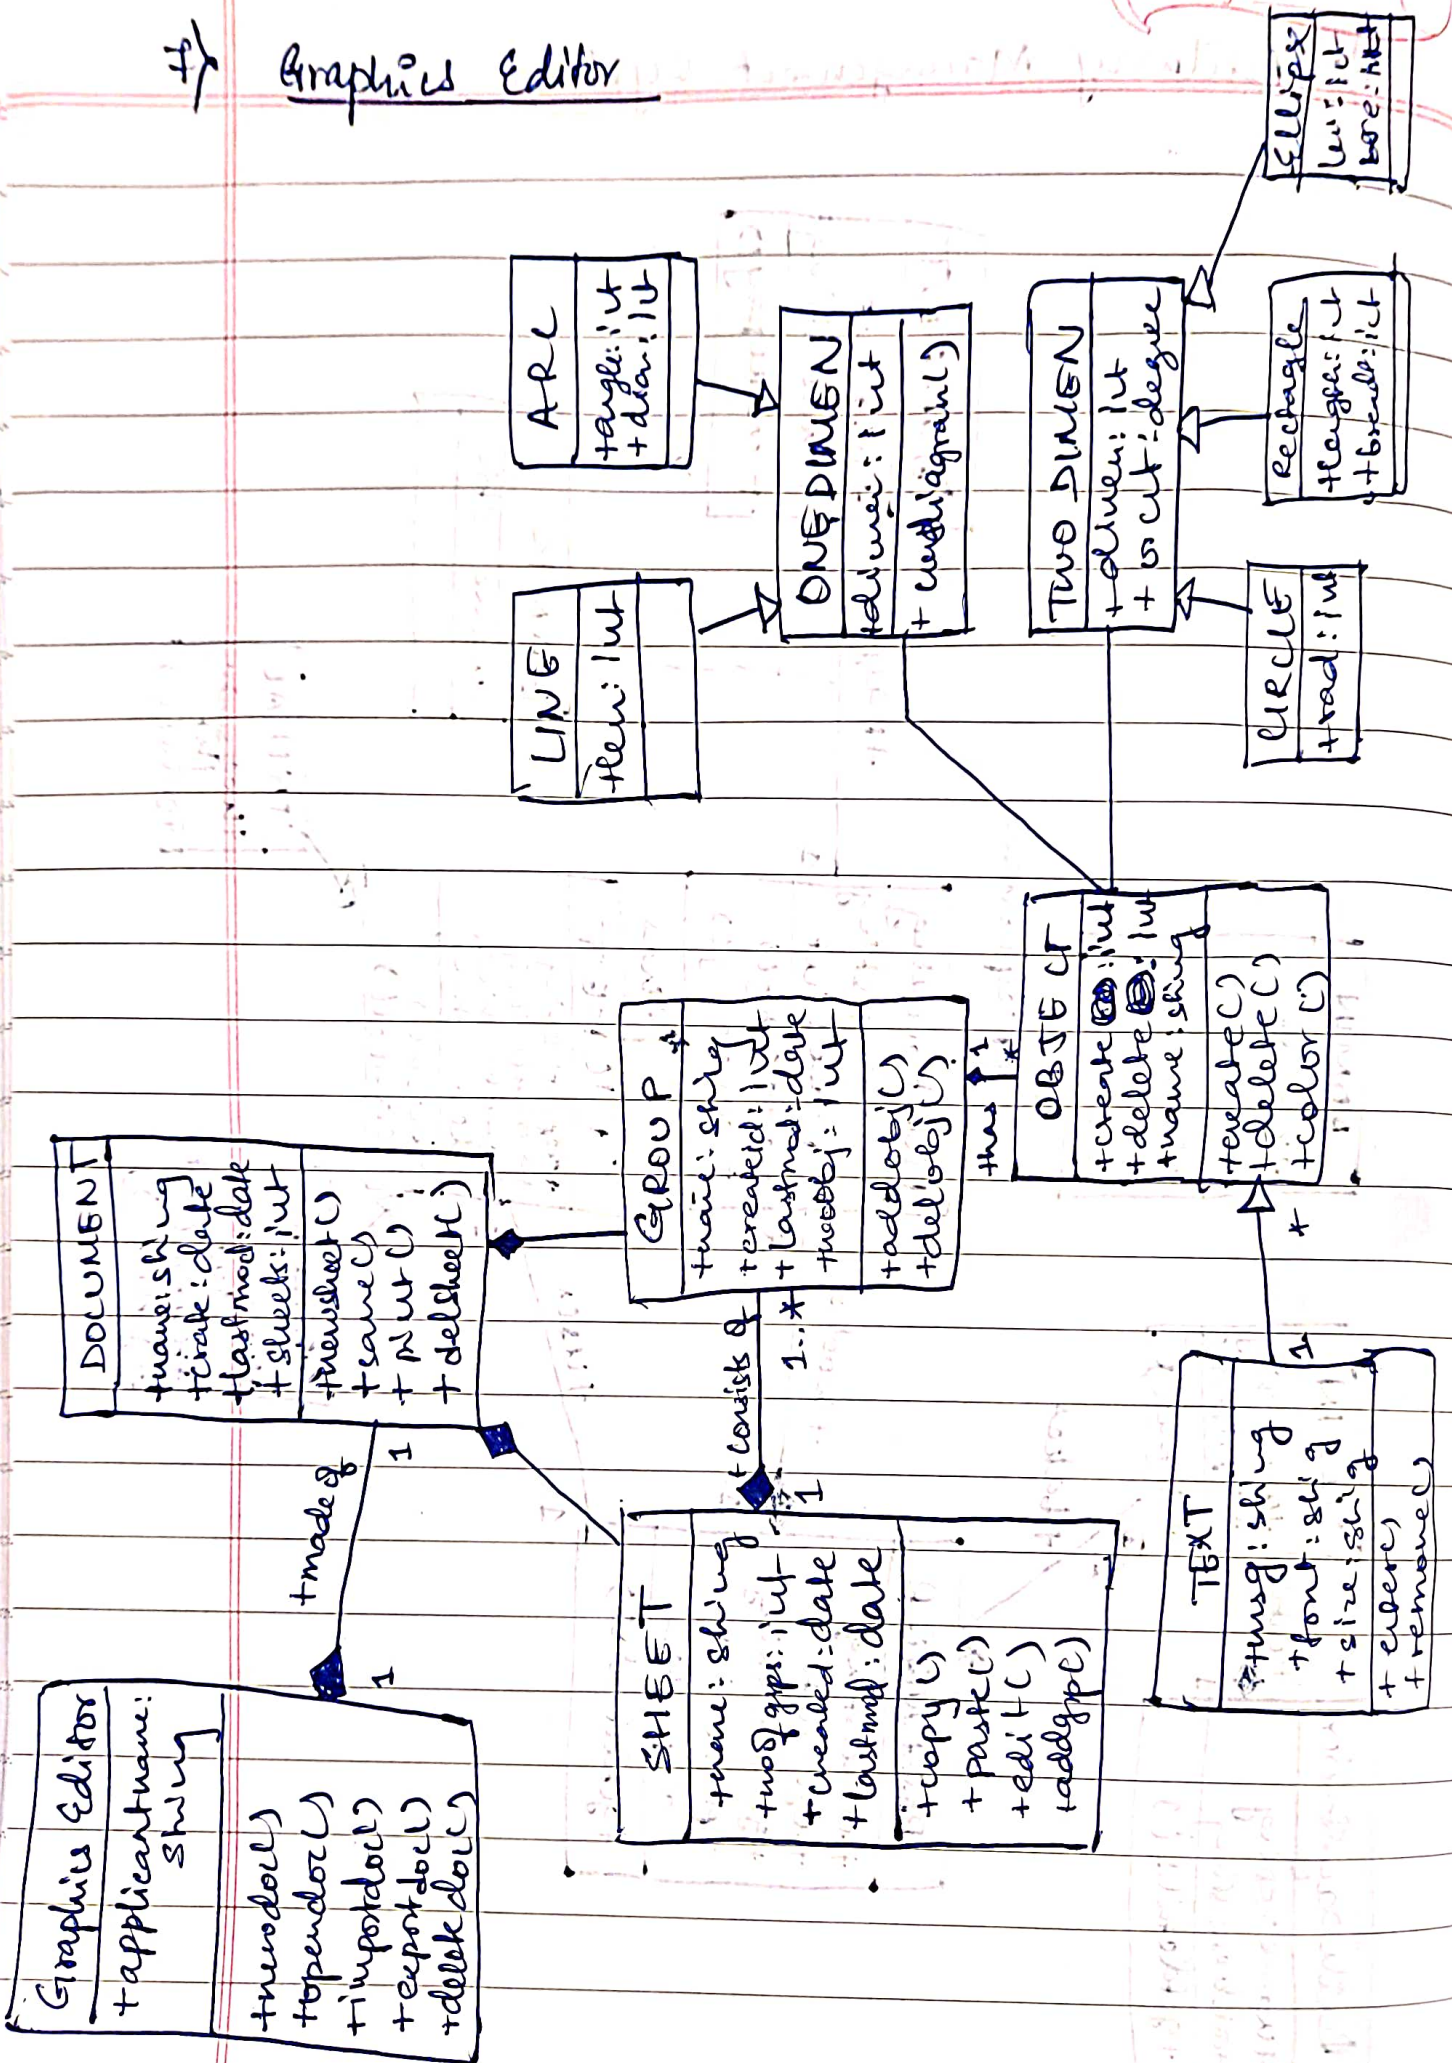 7) Graphics Editor
Graphics Editor
+applicantname:
string
+newdoc()
+opendoc()
+importdoc()
+exportdoc()
+deletedoc()
+made of
1
1
DOCUMENT
+name:string
+crate:date
+lastmod:date
+sheets:int
+newsheet()
+save()
+print()
+delsheet()
SHEET
+name:string
+noofgrps:int
+created:date
+lastmd:date
+copy()
+paste()
+edit()
+addgrp()
+consists of
1
1..*
GROUP
+name:string
+created:int
+lastmod:date
+noobj:int
+addobj()
+delobj()
+has
1
*
OBJECT
+create:int
+delete:int
+name:string
+create()
+delete()
+color()
*
1
TEXT
+msg:string
+font:string
+size:string
+enter()
+remove()
LINE
+len:int
ARC
+angle:int
+diam:int
ONEDIMEN
+dimen:int
TWO DIMEN
+dimen:int
CIRCLE
+rad:int
Rectagle
+length:int
+breadt:int
Ellipse